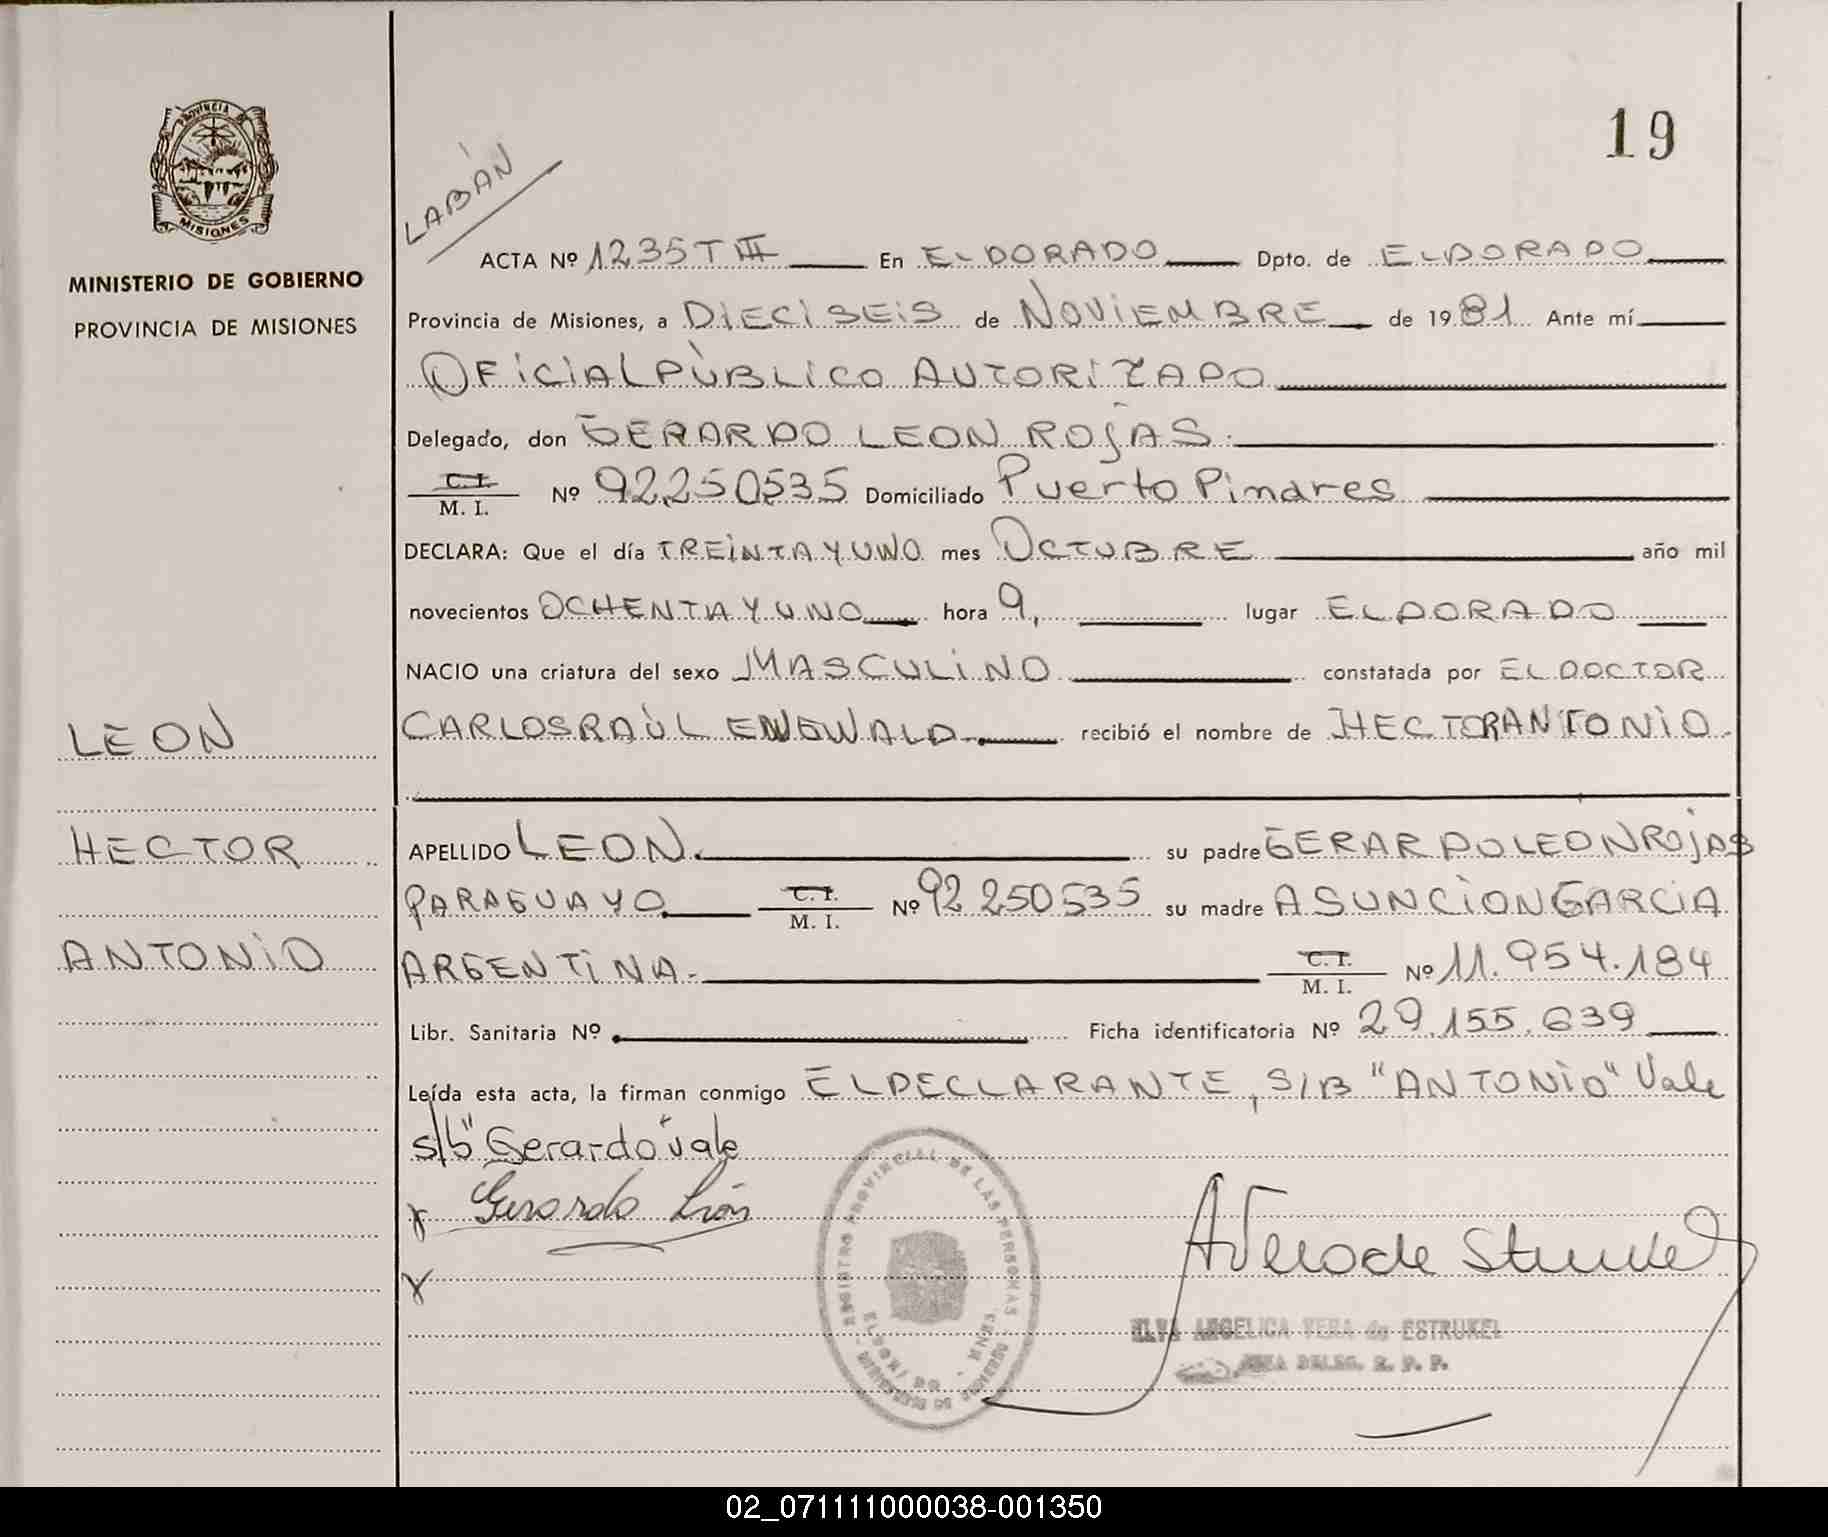 PROVINCIA DE
MISIONES
MINISTERIO DE GOBIERNO
PROVINCIA DE MISIONES
19
LABÁN
ACTA Nº 1235 T III En ELDORADO Dpto. de ELDORADO
Provincia de Misiones, a DIECISEIS de NOVIEMBRE de 1981 Ante mí
OFICIAL PÚBLICO AUTORIZADO
Delegado, don GERARDO LEON ROJAS.
C.I.
M. I. Nº 92.250.535 Domiciliado Puerto Pinares
DECLARA: Que el día TREINTA Y UNO mes OCTUBRE año mil
novecientos OCHENTA Y UNO hora 9, lugar ELDORADO
NACIO una criatura del sexo MASCULINO constatada por EL DOCTOR
CARLOS RAÚL ENGWALD recibió el nombre de HECTOR ANTONIO
LEON
HECTOR
ANTONIO
APELLIDO LEON. su padre GERARDO LEON ROJAS
PARAGUAYO C.I. M. I. Nº 92 250 535 su madre ASUNCION GARCIA
ARGENTINA C.I. M. I. Nº 11.954.184
Libr. Sanitaria Nº Ficha identificatoria Nº 29.155.639
Leída esta acta, la firman conmigo EL DECLARANTE, S/B "ANTONIO" Vale
s/b "Gerardo" vale
Gerardo León
REGISTRO PROVINCIAL DE LAS PERSONAS
ELDORADO
A Vera de Strukel
ELVA ANGELICA VERA de ESTRUKEL
JEFA DELEG. R. P. P.
02_071111000038-001350